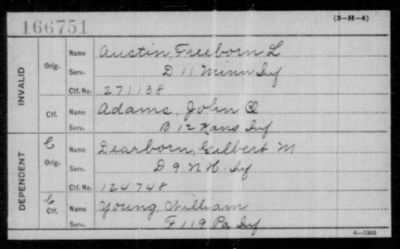 166751
(3-H-4)
INVALID
Orig.
Name Austin, Freeborn L
Serv. D 11 Minn Inf
Ctf. No. 271138
Ctf.
Name Adams, John Q
Serv. B 12 Kans Inf
DEPENDENT
C Orig.
Name Dearborn, Gilbert M
Serv. D 9 N H. Inf
Ctf. No. 124748
C Ctf.
Name Young, William
Serv. F 119 Pa Inf